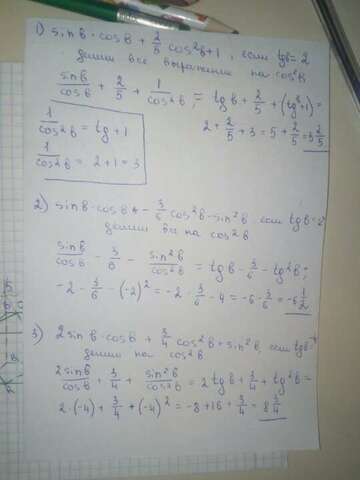 1) sin b · cos b + 2/5 cos²b + 1, если tg b = 2
делим все выражение на cos²b
sin b / cos b + 2/5 + 1/cos²b = tg b + 2/5 + (tg²+1) =
1/cos²b = tg + 1
2 + 2/5 + 3 = 5 + 2/5 = 5 2/5
1/cos²b = 2+1 = 3
2) sin b · cos b - 3/6 cos²b - sin²b, если tg b = -2
делим все на cos²b
sin b / cos b - 3/6 - sin²b / cos²b = tg b - 3/6 - tg²b =
-2 - 3/6 - (-2)² = -2 - 3/6 - 4 = -6 - 3/6 = -6 1/2
3) 2 sin b · cos b + 3/4 cos²b + sin²b, если tg b = -4
делим на cos²b
2 sin b / cos b + 3/4 + sin²b / cos²b = 2 tg b + 3/4 + tg²b =
2 · (-4) + 3/4 + (-4)² = -8 + 16 + 3/4 = 8 3/4